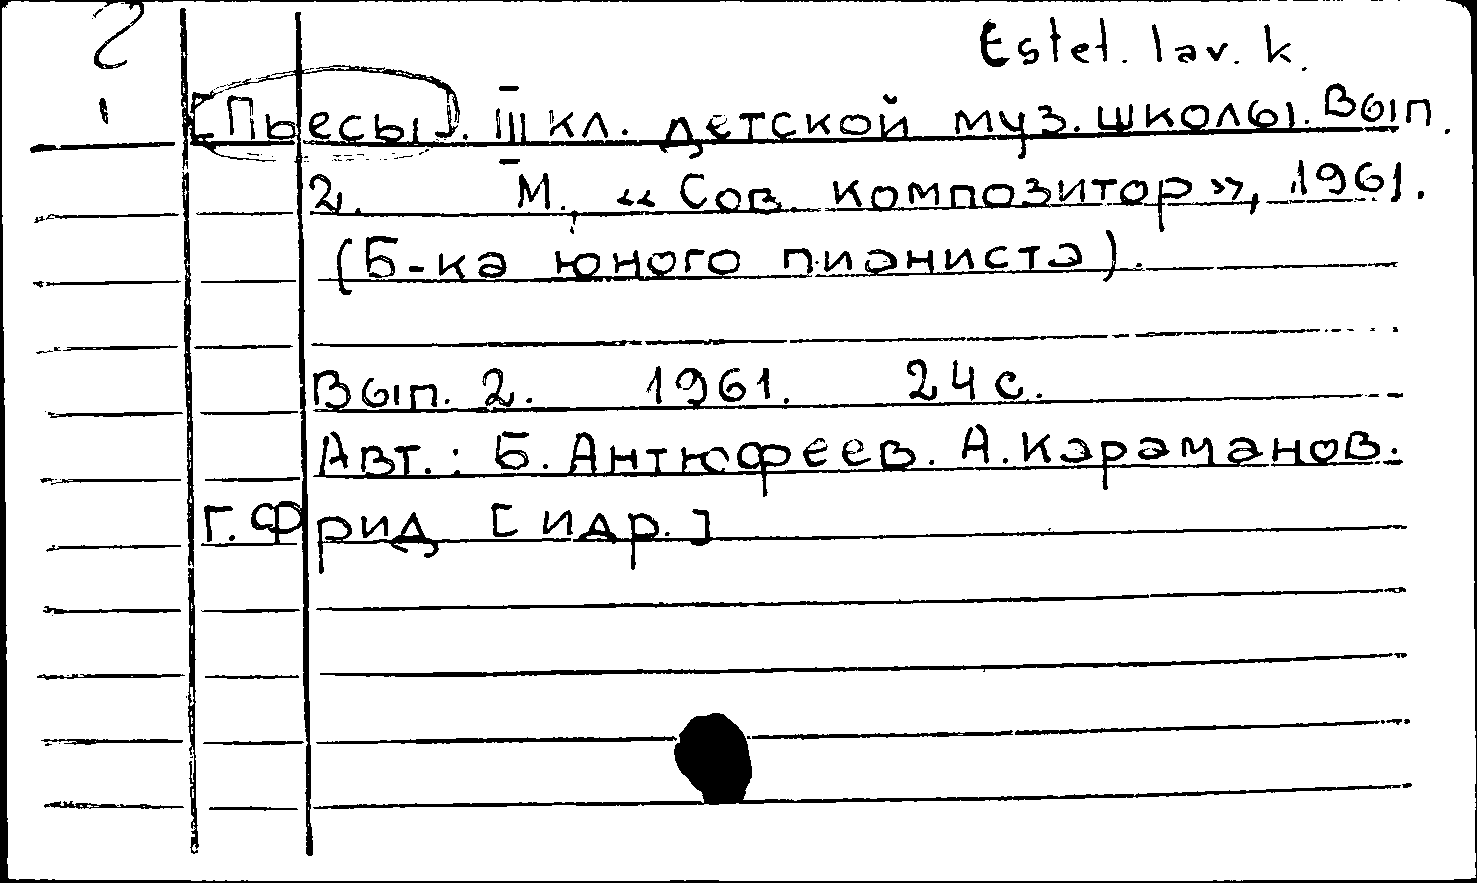 Estet. lav. k.
[Пьесы]. III кл. детской муз. школы. Вып.
2. М., «Сов. композитор», 1961.
(Б-ка юного пианиста).
Вып. 2. 1961. 24 с.
Авт.: Б. Антюфеев. А. Караманов.
Г. Фрид [идр.]